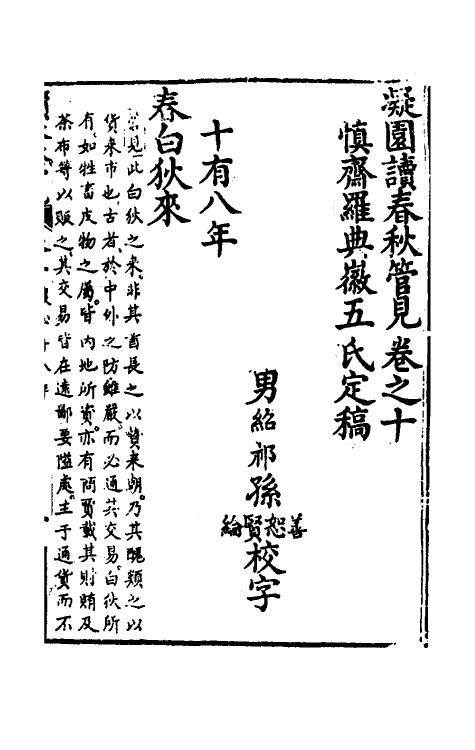 凝園讀春秋管見卷之十
慎齋羅典徽五氏定稿
男紹祁孫善恕賢綸校字
十有八年
春白狄來
管見此白狄之來非其酋長之以贄來朝乃其醜類之以
貨來市也古者於中外之防維嚴而必通其交易白狄所
有如牲畜皮物之屬皆內地所資亦有商賈載其財賄及
茶布等以販之其交易皆在遠鄙要隘處主于通貨而不